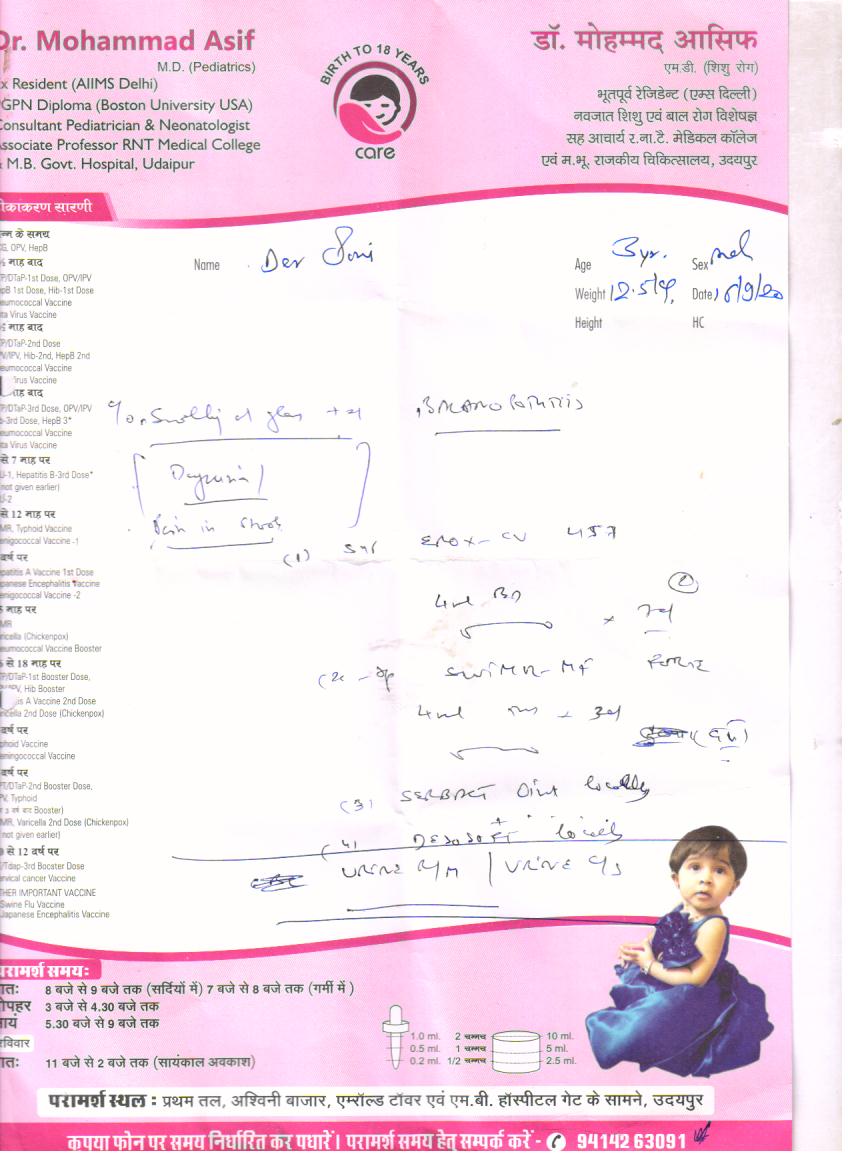 Dr. Mohammad Asif
M.D. (Pediatrics)
x Resident (AIIMS Delhi)
GPN Diploma (Boston University USA)
onsultant Pediatrician & Neonatologist
ssociate Professor RNT Medical College
M.B. Govt. Hospital, Udaipur
BIRTH TO 18 YEARS
care
डॉ. मोहम्मद आसिफ
एम.डी. (शिशु रोग)
भूतपूर्व रेजिडेन्ट (एम्स दिल्ली)
नवजात शिशु एवं बाल रोग विशेषज्ञ
सह आचार्य र.ना.टै. मेडिकल कॉलेज
एवं म.भू. राजकीय चिकित्सालय, उदयपुर
ीकाकरण सारणी
Name Dev Soni
Age 3yr. Sex
Weight 12.5 Date 16/9/20
Height HC
न्म के समय
G, OPV, HepB
माह बाद
P/DTaP-1st Dose, OPV/IPV
pB 1st Dose, Hib-1st Dose
eumococcal Vaccine
ta Virus Vaccine
माह बाद
P/DTaP-2nd Dose
V/IPV, Hib-2nd, HepB 2nd
eumococcal Vaccine
irus Vaccine
ाह बाद
P/DTaP-3rd Dose, OPV/IPV
b-3rd Dose, HepB 3*
eumococcal Vaccine
ta Virus Vaccine
से 7 माह पर
U-1, Hepatitis B-3rd Dose*
not given earlier)
U-2
से 12 माह पर
MR, Typhoid Vaccine
eningococcal Vaccine -1
वर्ष पर
patitis A Vaccine 1st Dose
panese Encephalitis Vaccine
eningococcal Vaccine -2
माह पर
MR
ricella (Chickenpox)
eumococcal Vaccine Booster
से 18 माह पर
P/DTaP-1st Booster Dose,
PV, Hib Booster
is A Vaccine 2nd Dose
ricella 2nd Dose (Chickenpox)
वर्ष पर
phoid Vaccine
eningococcal Vaccine
वर्ष पर
PT/DTaP-2nd Booster Dose,
PV, Typhoid
वर्ष बाद Booster)
MR, Varicella 2nd Dose (Chickenpox)
not given earlier)
से 12 वर्ष पर
/Tdap-3rd Booster Dose
ervical cancer Vaccine
THER IMPORTANT VACCINE
Swine Flu Vaccine
Japanese Encephalitis Vaccine
Swelling of glans +
BALANOPOSTHITIS
Pain in
(1) EROX-CV 457
4ml BD × 7d
SWIMOR-MF FORTE
4ml × 3d
(3) SERBACT Oint locally
+
(4) DESOSOFT locally
URINE R/M | URINE C/S
परामर्श समयः
ातः 8 बजे से 9 बजे तक (सर्दियों में) 7 बजे से 8 बजे तक (गर्मी में )
ोपहर 3 बजे से 4.30 बजे तक
ायं 5.30 बजे से 9 बजे तक
रविवार
ातः 11 बजे से 2 बजे तक (सायंकाल अवकाश)
1.0 ml. 2 चम्मच 10 ml.
0.5 ml. 1 चम्मच 5 ml.
0.2 ml. 1/2 चम्मच 2.5 ml.
परामर्श स्थल : प्रथम तल, अश्विनी बाजार, एमरॉल्ड टॉवर एवं एम.बी. हॉस्पीटल गेट के सामने, उदयपुर
कृपया फोन पर समय निर्धारित कर पधारें। परामर्श समय हेतु सम्पर्क करें - 94142 63091